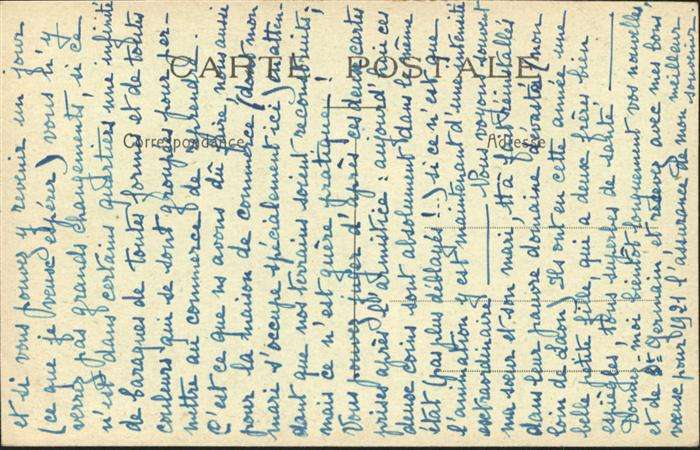 CARTE POSTALE
Correspondance
Adresse
et si vous pouvez y revenir un jour
(ce que je veux espérer) vous n'y
verrez pas grands changements, si ce
n'est dans certains quartiers une infinité
de baraques de toutes formes et de toutes
couleurs qui se sont groupées pour per-
mettre au commerce de reprendre.
C'est ce que ns avons dû faire ns aussi
pour la maison de commerce (dont mon
mari s'occupe spécialement ici) atten-
dant que nos terrains soient reconstruits;
mais ce n'est guère pratique!
Vous pouvez juger d'après ces deux cartes
prises après l'armistice: aujourd'hui ces
deux coins sont absolument dans le même
état (pas plus déblayés!) si ce n'est que
l'animation y est maintenant d'une intensité
extraordinaire. Nous voyons souvent
ma sœur et son mari, réinstallés
dans leur pauvre domaine dévasté (non
loin de Laon) Ils ont eu cette année une
belle petite fille qui a deux frères bien
espiègles! tous superbes de santé!
Donnez-moi bientôt longuement vos nouvelles,
et de St Germain et recevez avec mes bons
vœux pour 1921 l'assurance de mon meilleur souvenir